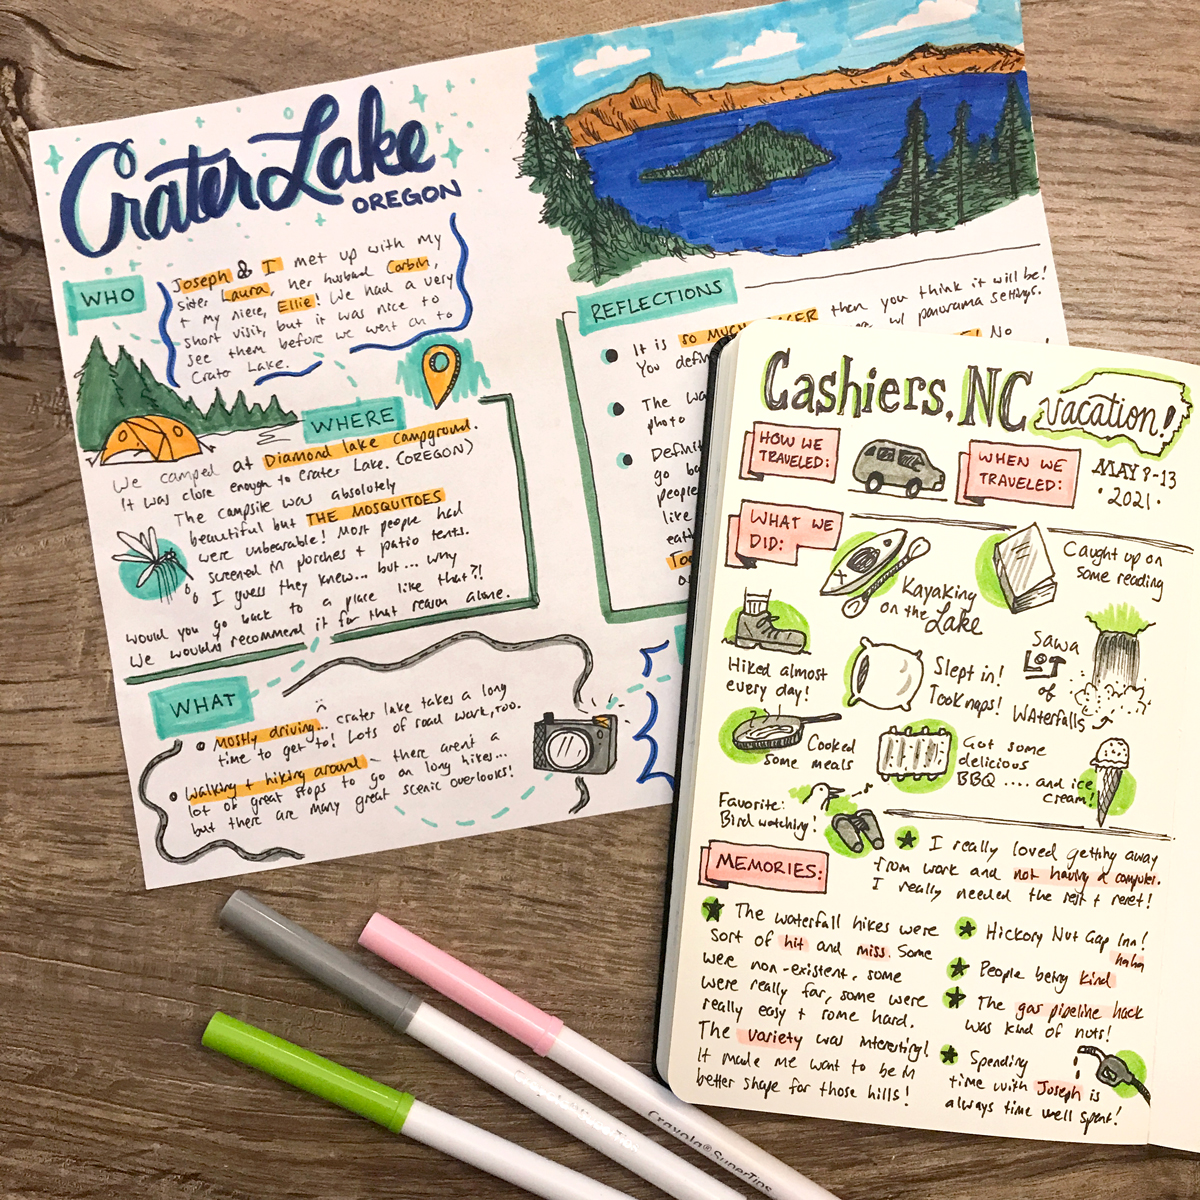 Crater Lake
OREGON
WHO
Joseph & I met up with my
sister Laura, her husband Corbin,
+ my niece, Ellie! We had a very
short visit, but it was nice to
see them before we went on to
Crater Lake.
WHERE
We camped at Diamond lake campground.
It was close enough to Crater Lake. (OREGON)
The campsite was absolutely
beautiful but THE MOSQUITOES
were unbearable! Most people had
screened in porches + patio tents.
I guess they knew... but... why
would you go back to a place like that?!
We wouldn't recommend it for that reason alone.
WHAT
Mostly driving... crater lake takes a long
time to get to! Lots of road work, too.
Walking + hiking around - there aren't a
lot of great stops to go on long hikes...
but there are many great scenic overlooks!
REFLECTIONS
It is SO MUCH BIGGER than you think it will be!
You defin w/ panorama settings.
The Wa No
photo
Definit
go ba
people
like
eat
Too
Cashiers, NC vacation!
HOW WE
TRAVELED:
WHEN WE
TRAVELED:
MAY 8-13
• 2021 •
WHAT WE
DID:
Kayaking
on the Lake
Caught up on
some reading
Hiked almost
every day!
Slept in!
Took naps!
Saw a
LOT
of
Waterfalls
Cooked
some meals
Got some
delicious
BBQ .... and ice
cream!
Favorite:
Bird watching!
MEMORIES:
I really loved getting away
from work and not having a computer.
I really needed the rest + reset!
The waterfall hikes were
sort of hit and miss. Some
were non-existent, some
were really far, some were
really easy + some hard.
The variety was interesting!
It made me want to be in
better shape for those hills!
Hickory Nut Gap Inn!
haha
People being kind
The gas pipeline hack
was kind of nuts!
Spending
time with Joseph is
always time well spent!
Crayola® SuperTips